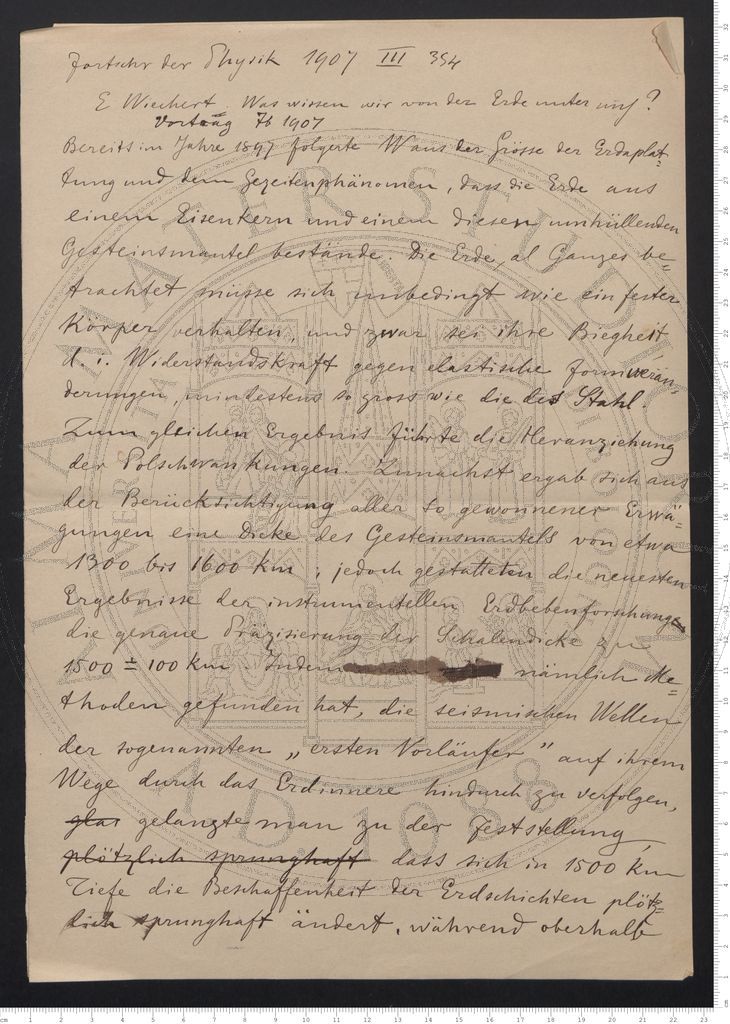 Fortschr der Physik 1907 III 354
E Wiechert. Was wissen wir von der Erde unter uns?
Vortrag 7b 1907
Bereits im Jahre 1897 folgerte W aus der Grösse der Erdaplat=
tung und dem Gezeitenphänomen, dass die Erde aus
einem Eisenkern und einem diesen umhüllenden
Gesteinsmantel bestände. Die Erde, al Ganzes be=
trachtet müsse sich unbedingt wie ein fester
Körper verhalten, und zwar sei ihre Riegheit
d. i. Widerstandskraft gegen elastische Formverän=
derungen, mindestens so gross wie die des Stahl.
Zum gleichen Ergebnis führte die Heranziehung
der Polschwankungen. Zunächst ergab sich aus
der Berücksichtigung aller so gewonnener Erwä=
gungen eine Dicke des Gesteinsmantels von etwa
1300 bis 1600 km ; jedoch gestatteten die neuesten
Ergebnisse der instrumentellen Erdbebenforschung
die genaue Präzisierung der Schalendicke zu
1500 ± 100 km. Indem nämlich Me=
thoden gefunden hat, die seismischen Wellen
der sogenannten „ersten Vorläufer" auf ihrem
Wege durch das Erdinnere hindurch zu verfolgen,
gelangte man zu der Feststellung,
plötzlich sprunghaft dass sich in 1500 km
Tiefe die Beschaffenheit der Erdschichten plötz=
lich sprunghaft ändert, während oberhalb
MATER STUD
A.D. 1088